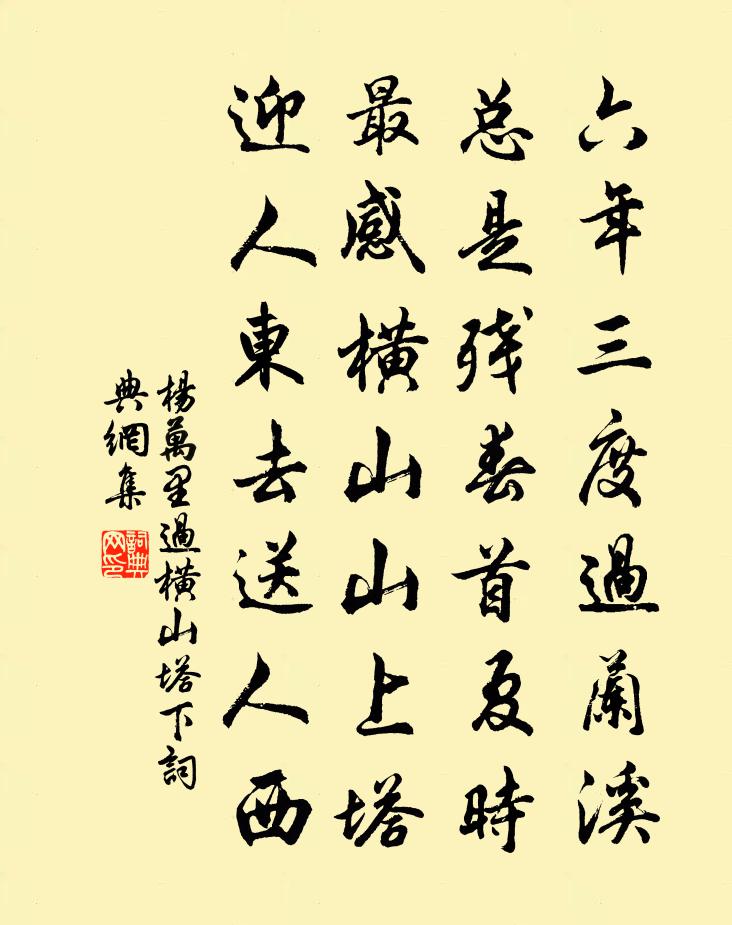 六年三度過蘭溪
总是残春首夏時
最感橫山山上塔
迎人東去送人西
楊萬里過橫山塔下詞
典網集
詞典
网印